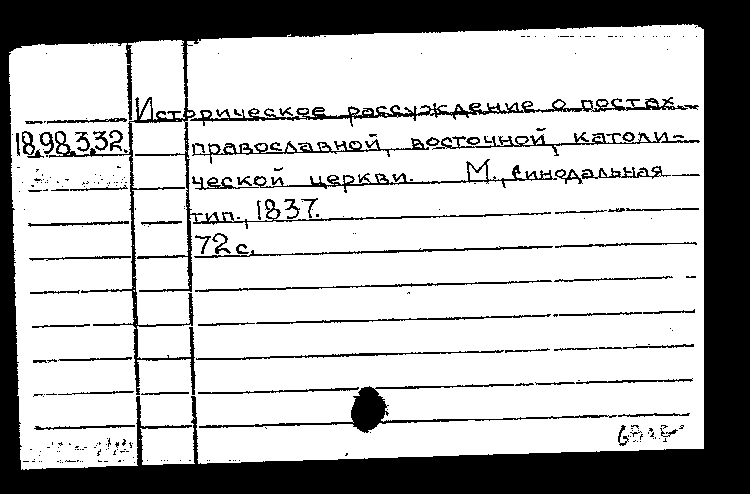 Историческое рассуждение о постах
18.98.3.32. православной, восточной, католи-
ческой церкви. М., синодальная
тип., 1837.
72 с.